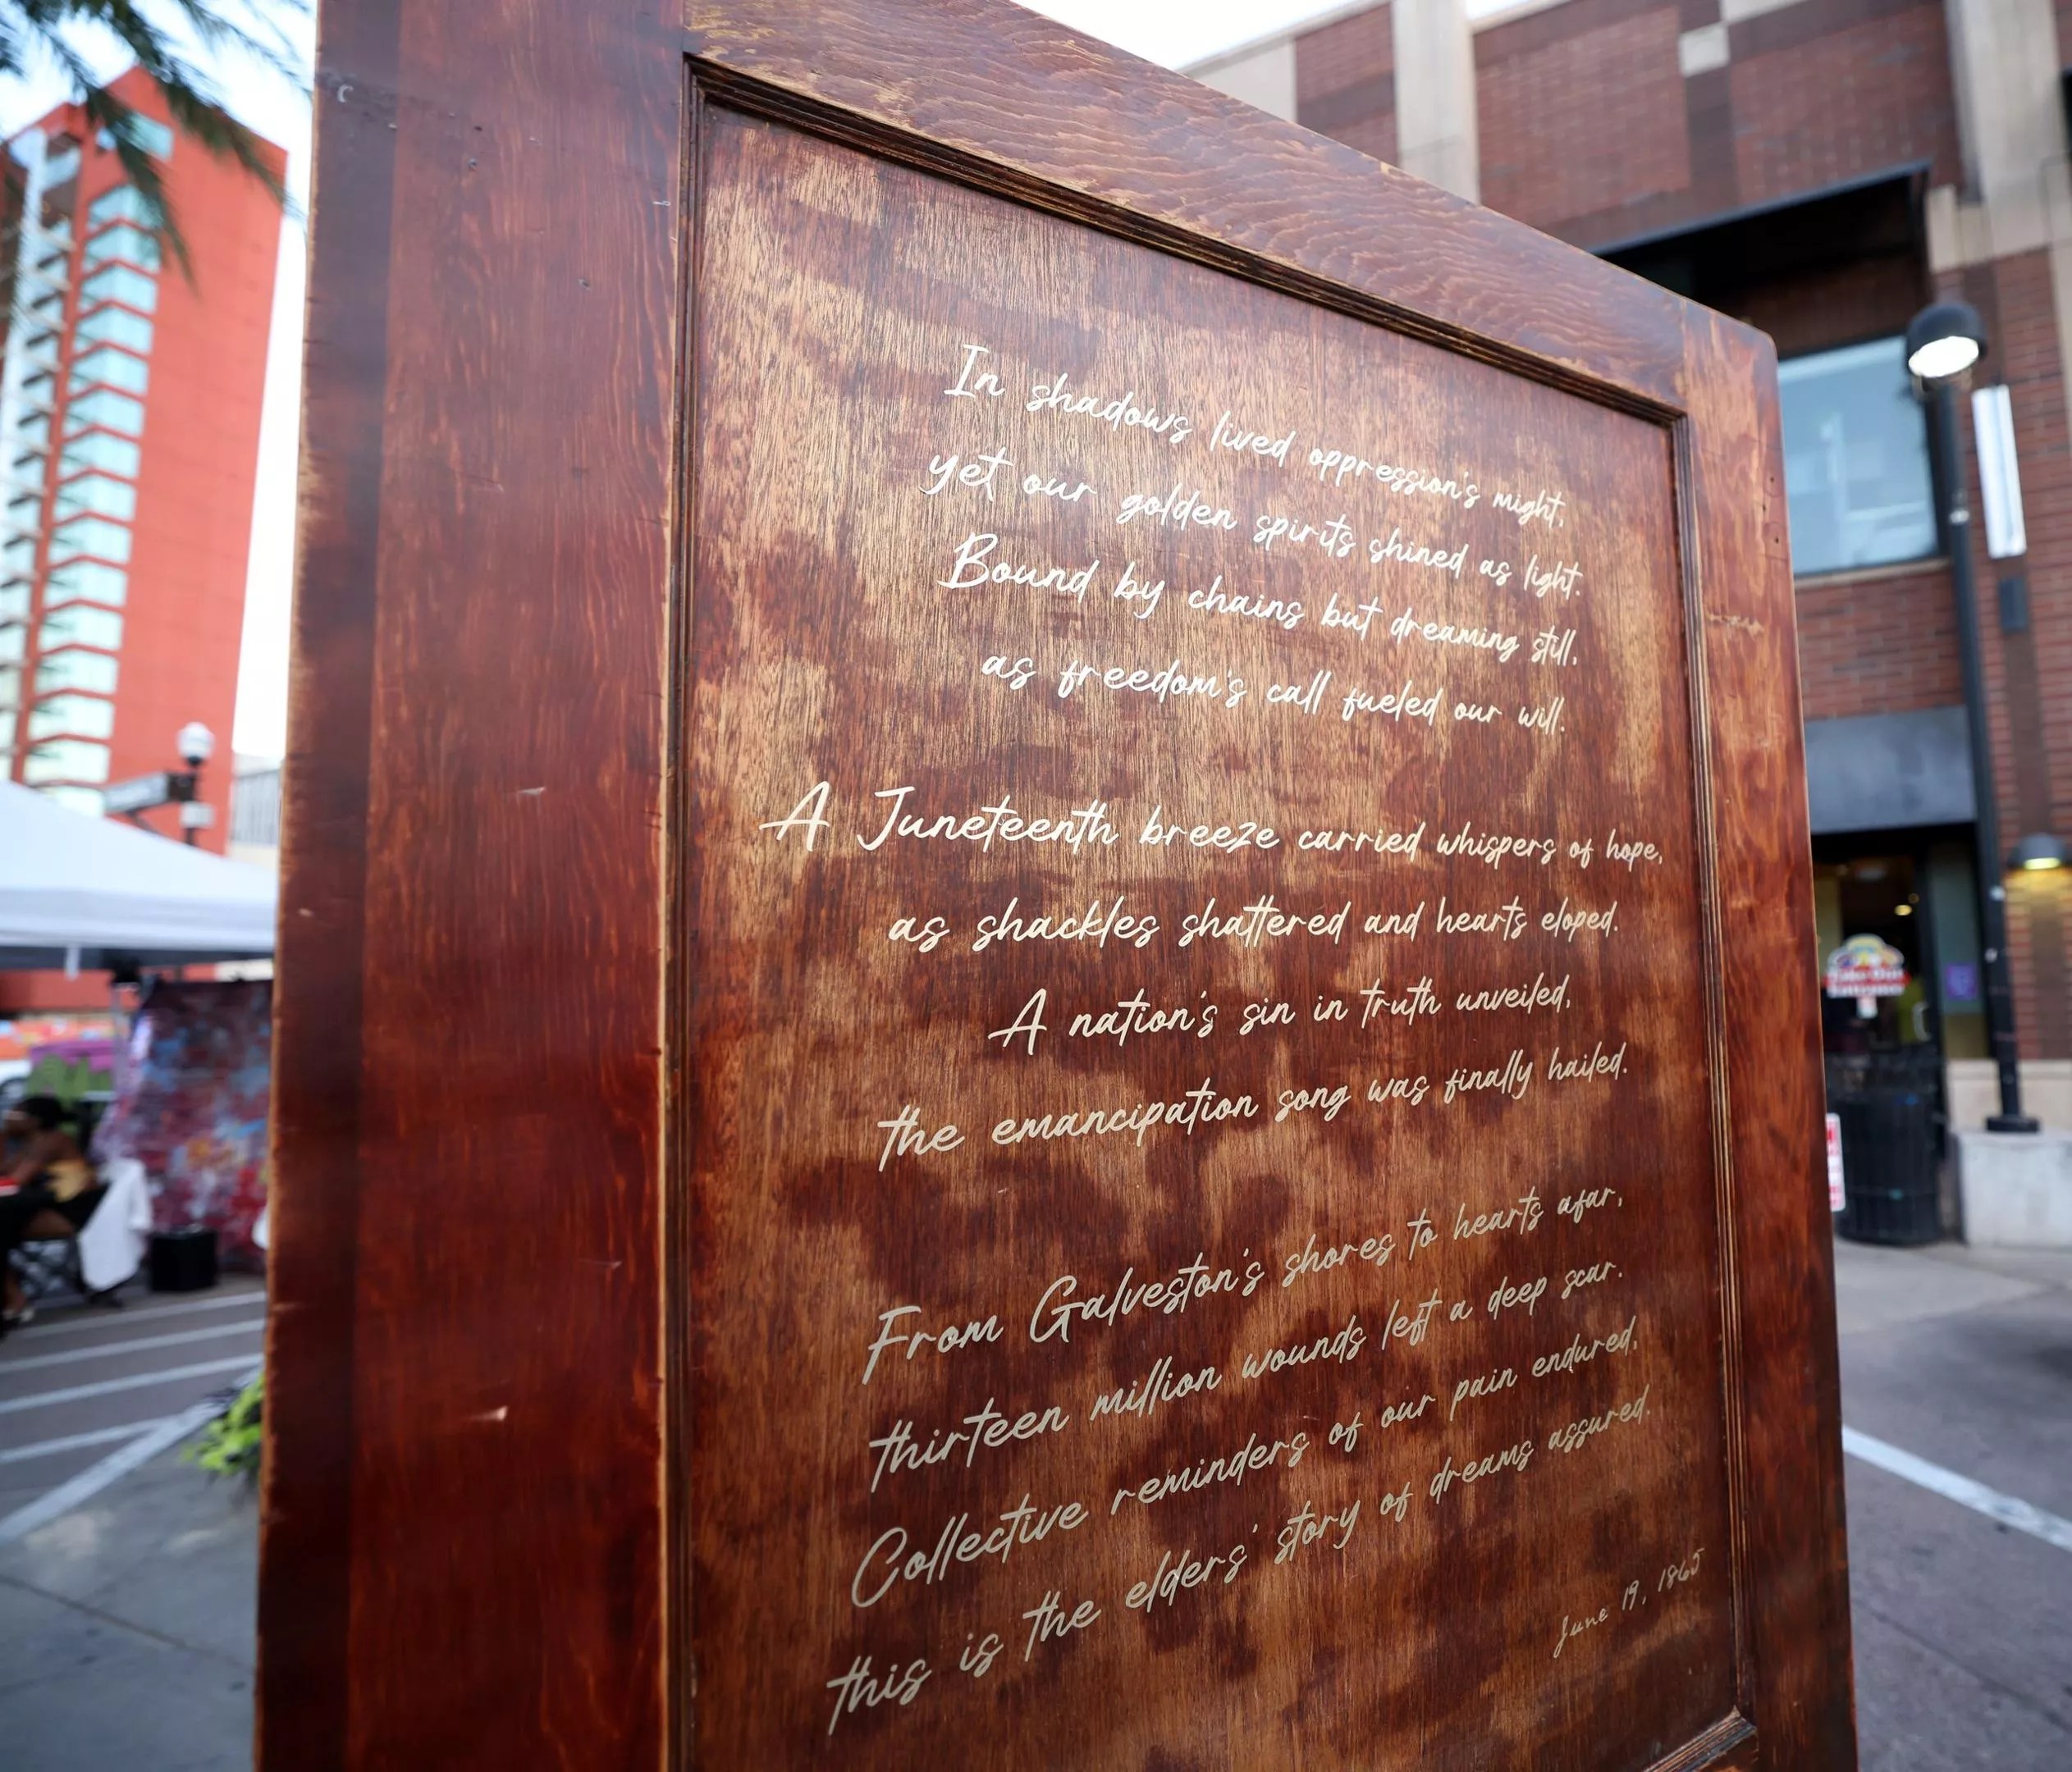 In shadows lived oppression's might,
yet our golden spirits shined as light.
Bound by chains but dreaming still,
as freedom's call fueled our will.
A Juneteenth breeze carried whispers of hope,
as shackles shattered and hearts eloped.
A nation's sin in truth unveiled,
the emancipation song was finally hailed.
From Galveston's shores to hearts afar,
thirteen million wounds left a deep scar.
Collective reminders of our pain endured,
this is the elders' story of dreams assured.
June 19, 1865